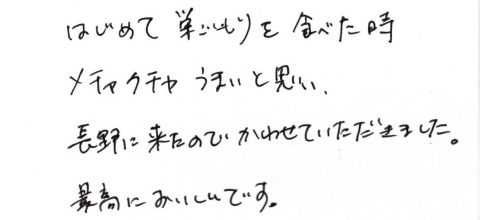 はじめて 巣ごもりを 食べた時
メチャクチャ うまいと思い、
長野に来たので かわせていただきました。
最高においしいです。